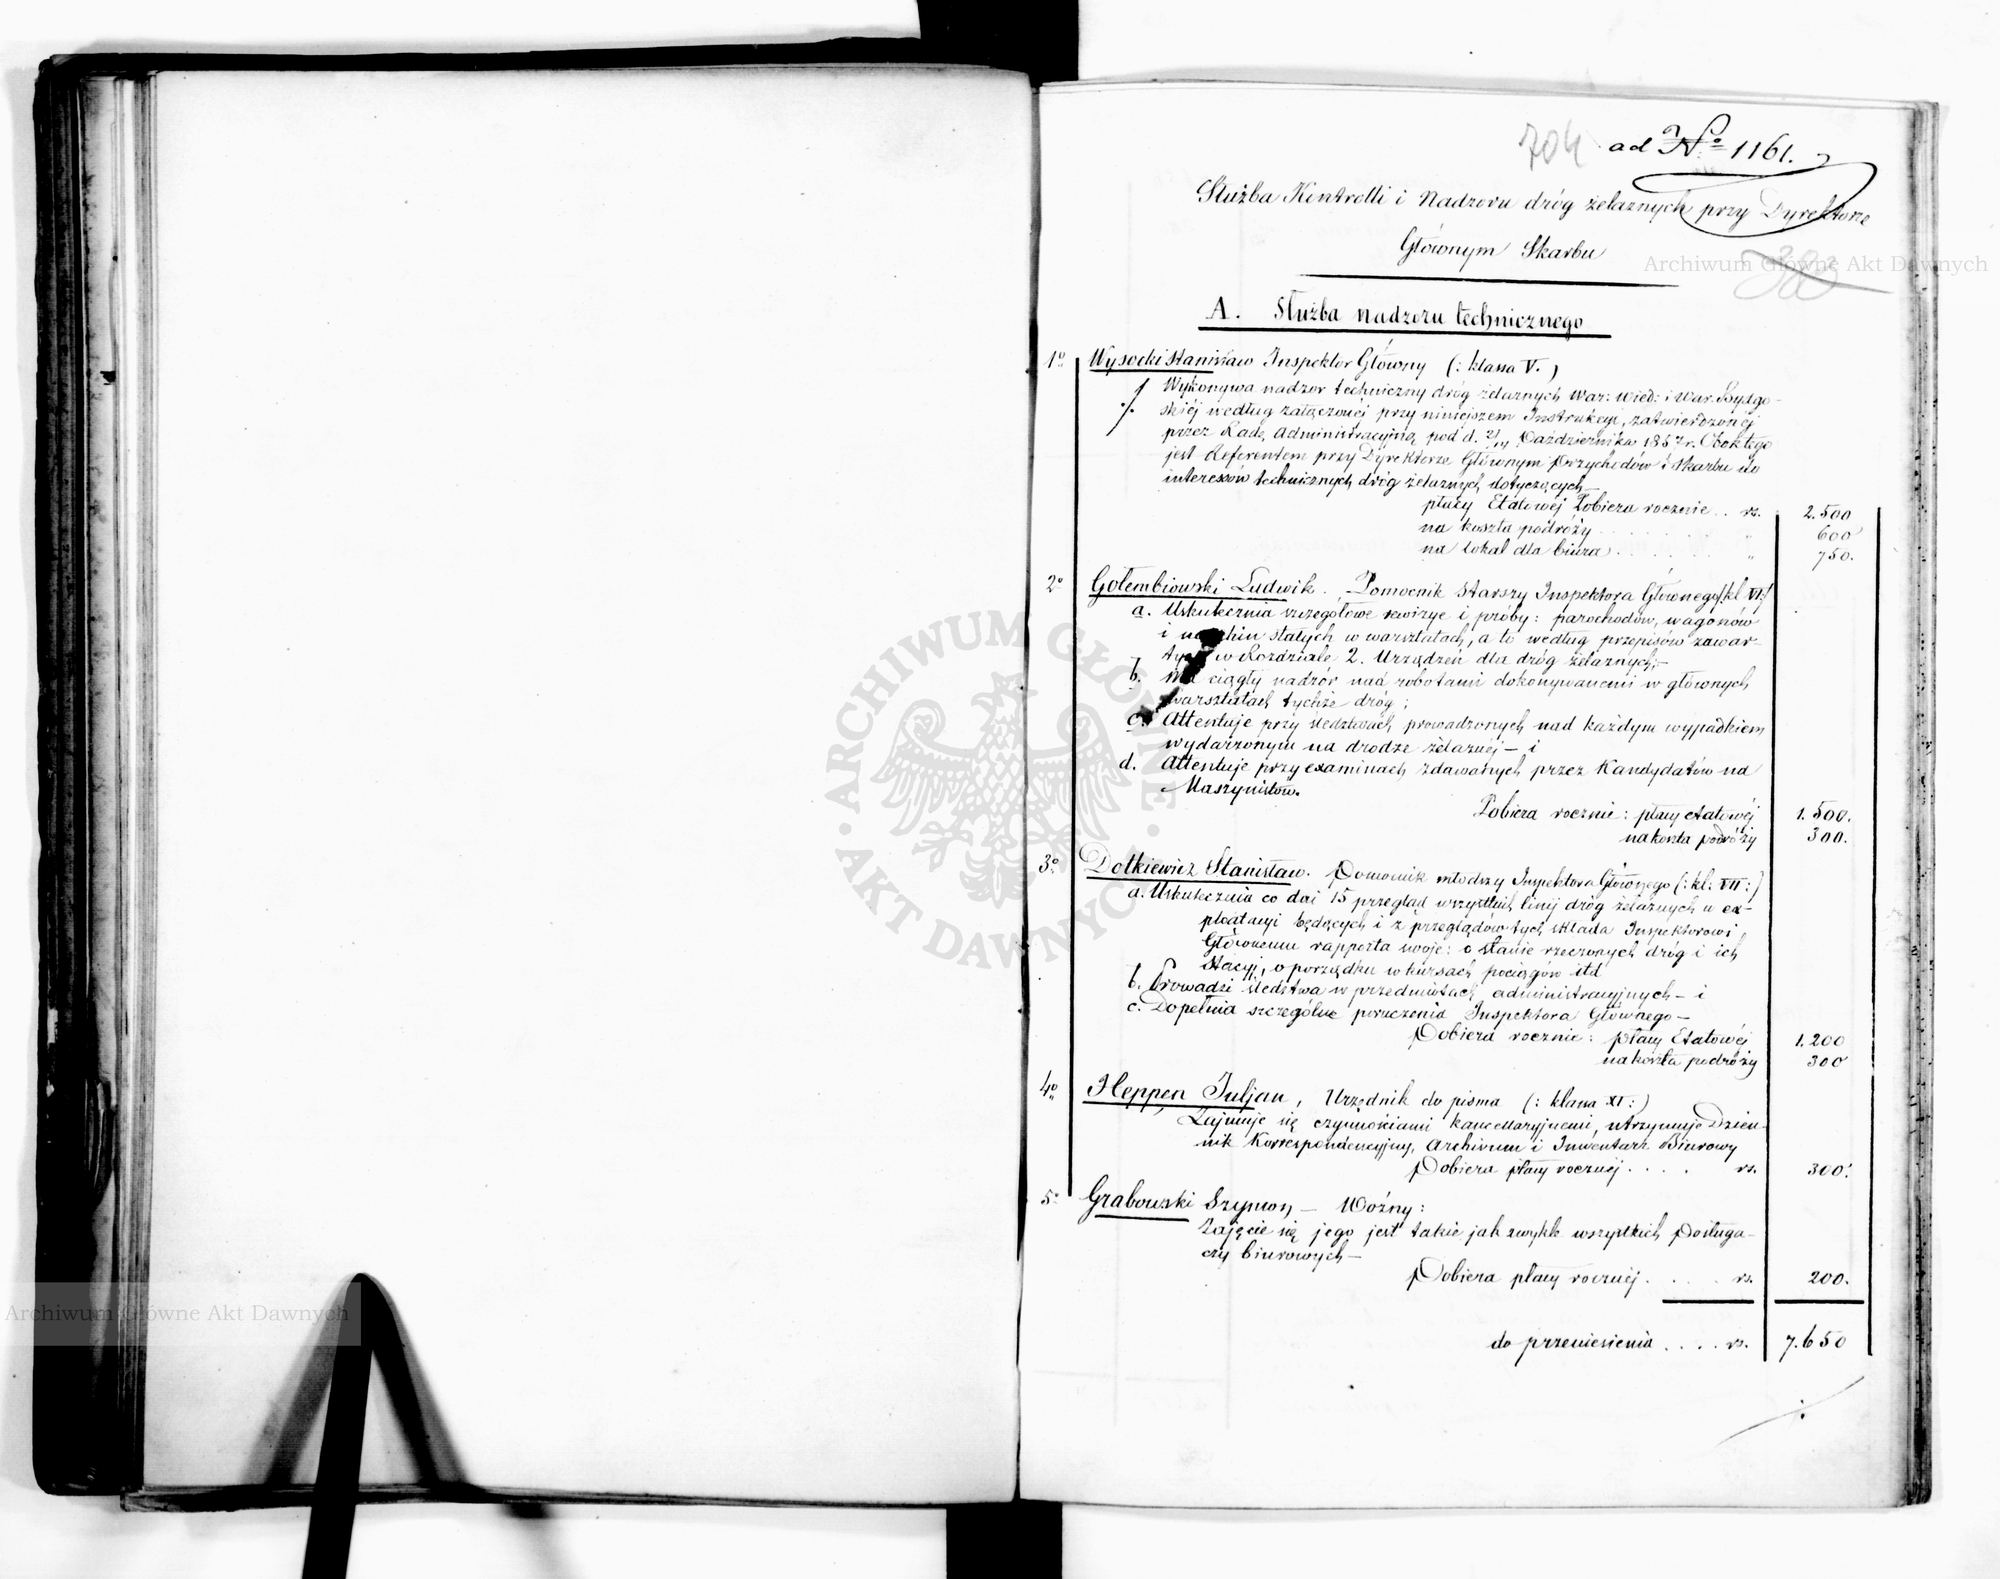 704 ad No 1161.
Służba Kontrolli i Nadzoru dróg żelaznych przy Dyrektorze
Głównym Skarbu
A. Służba nadzoru technicznego
1o Wysocki Stanisław Inspektor Główny (: klassa V.)
Wykonywa nadzor techniczny dróg żelaznych War: Wied: i War. Bydgo-
skiéj według załączonéj przy niniejszem Instrukcyi, zatwierdzonéj
przez Radę Administracyjną pod d. Października 1857 r. Obok tego
jest Referentem przy Dyrektorze Głównym Przychodów i Skarbu do
interessów technicznych dróg żelaznych dotyczących—
płacy Etatowéj Pobiera rocznie .. rs. 2.500
na koszta podróży . . . . . . " 600
na lokal dla biura . . . . . . " 750.
2o Gołembiowski Ludwik. Pomocnik starszy Inspektora Głównego (: kl VI:)
a. Uskutecznia szczegółowe rewizye i próby: parochodów, wagonów
i machin stałych w warsztatach, a to według przepisów zawar-
tych w Rozdziale 2. Urządzeń dla dróg żelaznych;—
b. Ma ciągły nadzór nad robotami dokonywanemi w głównych
warsztatach tychże dróg;
c. Attentuje przy śledztwach prowadzonych nad każdym wypadkiem
wydarzonym na drodze żelaznéj — i
d. Attentuje przy examinach zdawanych przez Kandydatów na
Maszynistów.
Pobiera rocznie: płacy etatowéj 1.500.
na koszta podróży 300.
3o Dotkiewicz Stanisław. Pomocnik młodszy Inspektora Głównego (: kl: VII :)
a. Uskutecznia co dni 15 przegląd wszystkich linij dróg żelaznych w ex-
ploatacyi będących i z przeglądów tych składa Inspektorowi
Głównemu rapporta swoje: o stanie rzeczonych dróg i ich
Stacyj, o porządku w kursach pociągów itd
b. Prowadzi śledztwa w przedmiotach administracyjnych — i
c. Dopełnia szczególne poruczenia Inspektora Głównego —
Pobiera rocznie: płacy Etatowéj 1.200
na koszta podróży 300
4o Heppen Juljan, Urzędnik do pisma (: klassa XI :)
Zajmuje się czynnościami kancellaryjnemi, utrzymuje Dzien-
nik Korrespondencyjny, Archiwum i Inwentarz Biurowy
Pobiera płacy rocznéj . . . . rs. 300.
5o Grabowski Szymon — Woźny:
Zajęcie się jego jest takie jak zwykle wszystkich Posługa-
czy biurowych —
Pobiera płacy rocznéj . . . . rs. 200.
do przeniesienia . . . . rs. 7.650
Archiwum Główne Akt Dawnych
Archiwum Główne Akt Dawnych
ARCHIWUM GŁÓWNE · AKT DAWNYCH ·